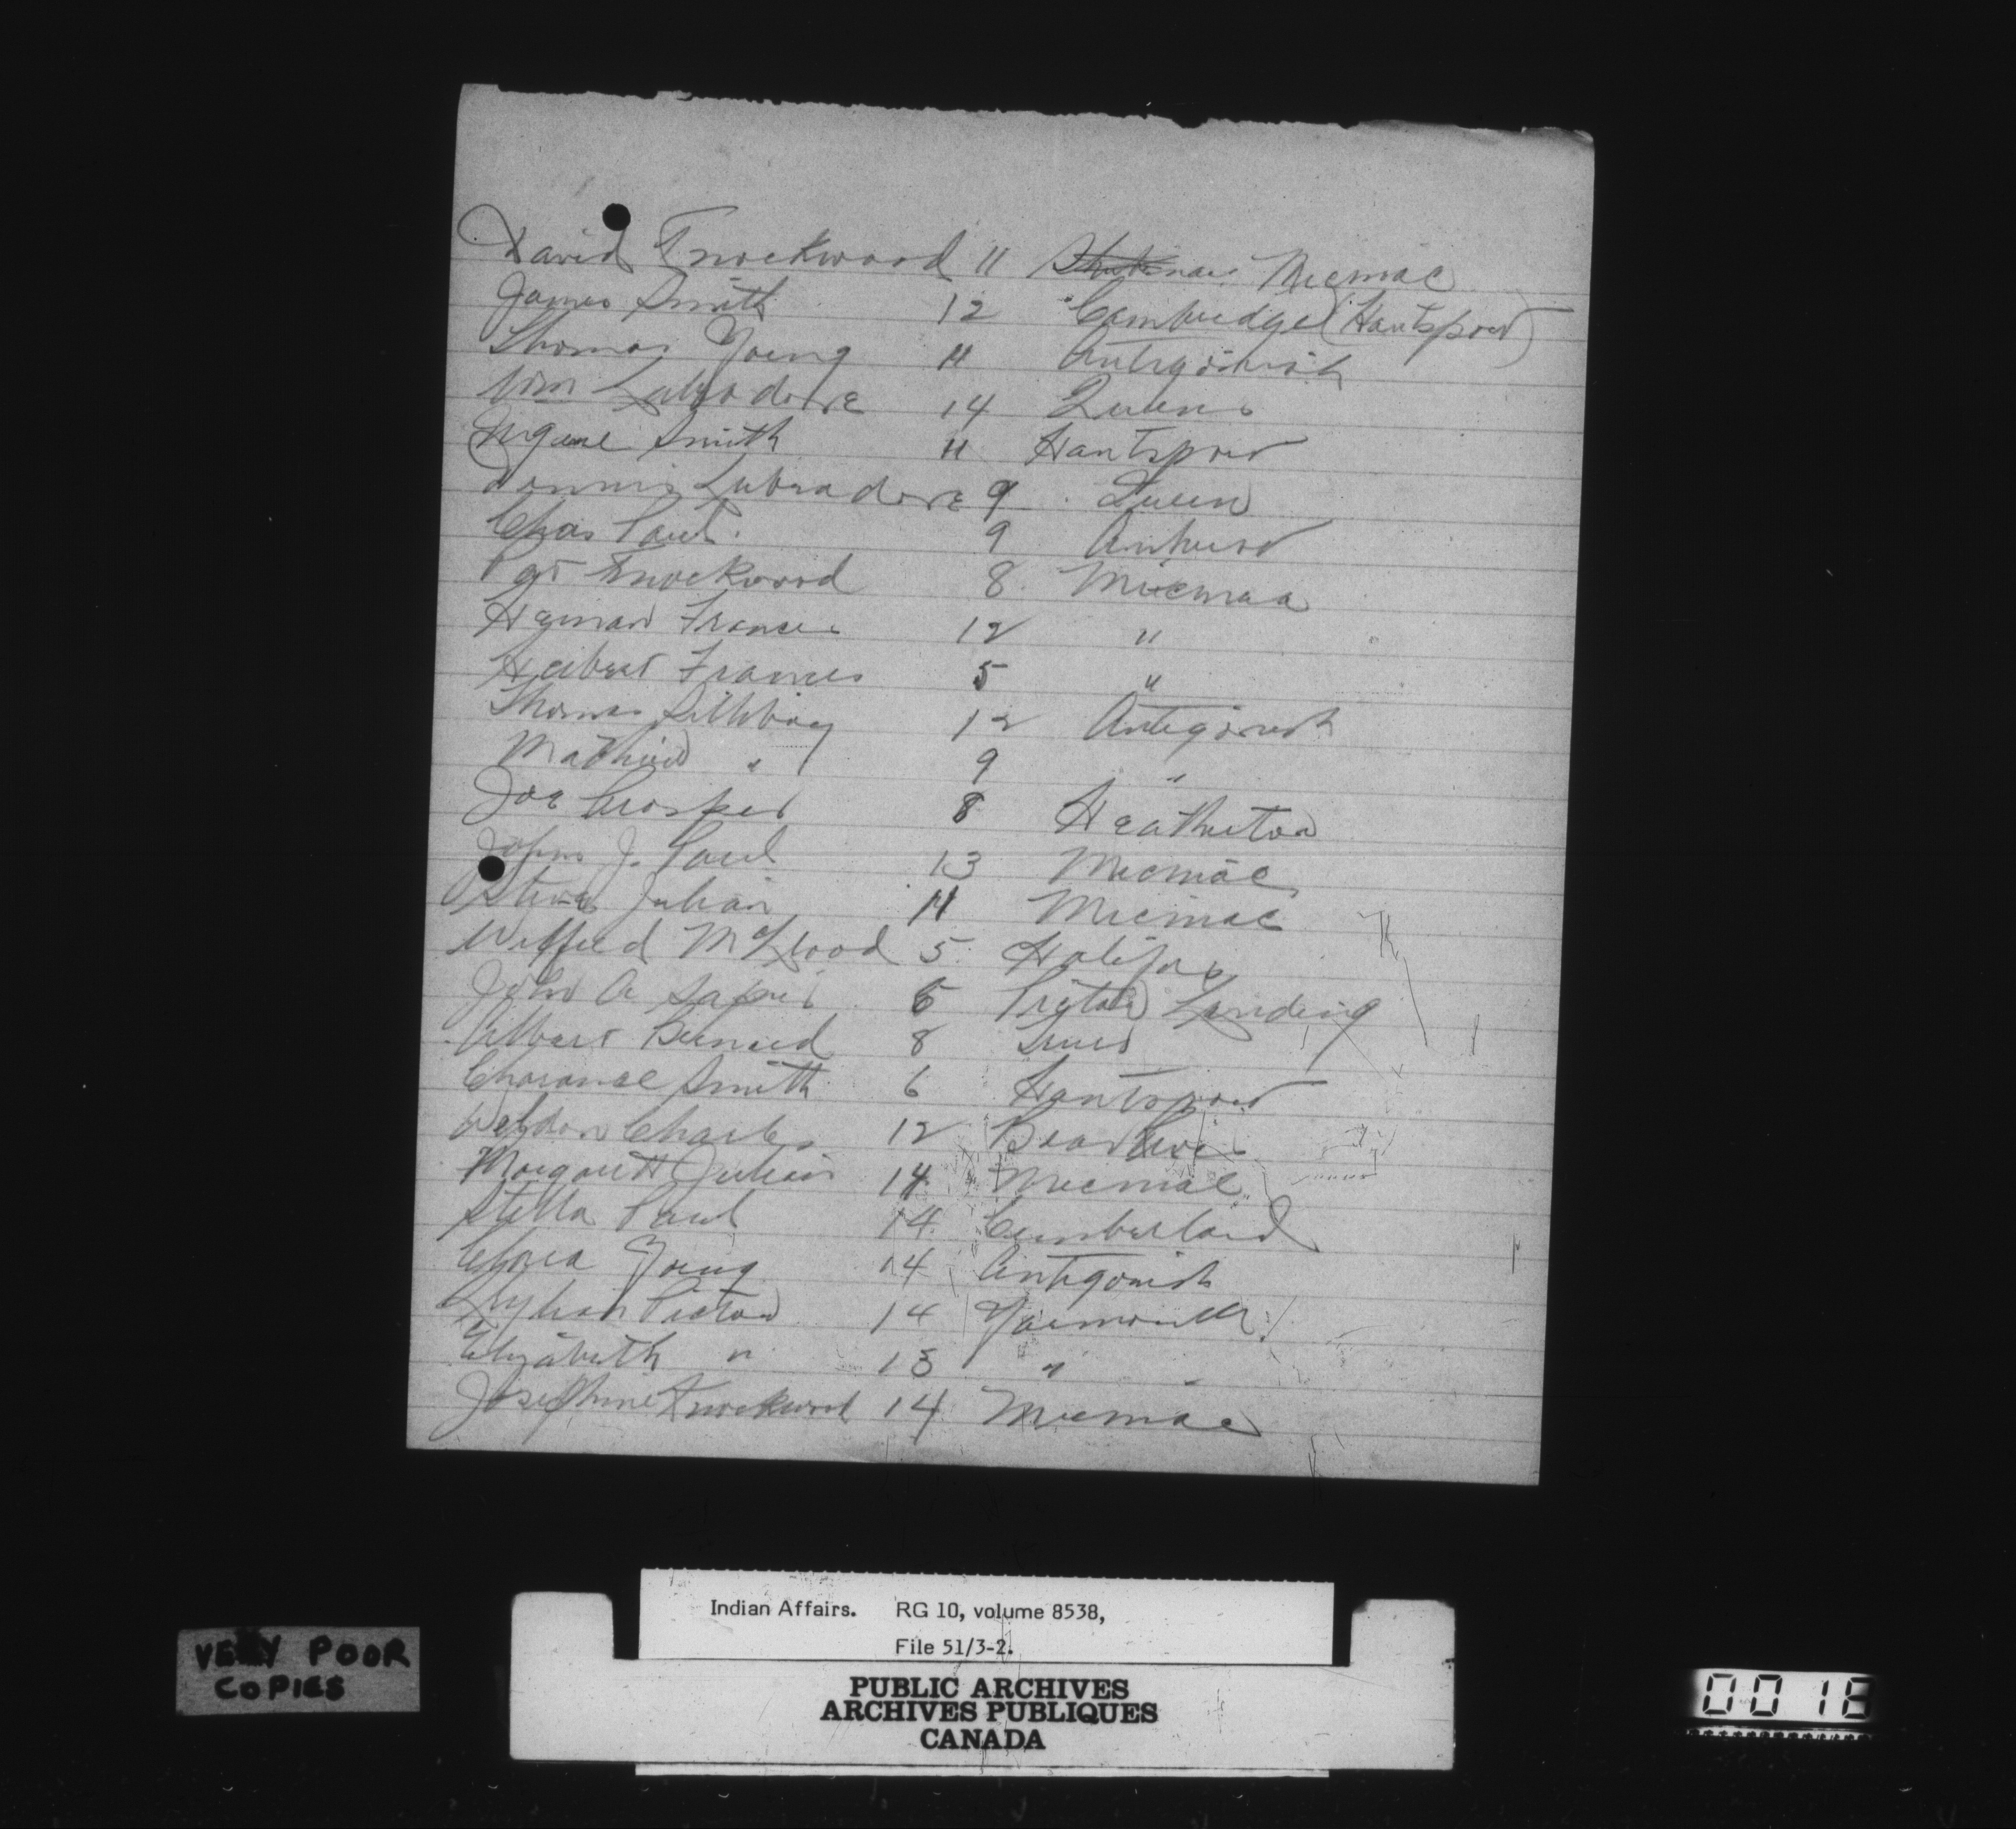 David Knockwood 11 Micmac
James Smith 12 Cambridge (Hantsport)
Thomas Young 11 Antigonish
Wm Labradore 14 Queens
Smith 11 Hantsport
Dennis Labradore 9 Queen
Chas Paul. 9 Amherst
Knockwood 8 Micmac
Francis 12 "
Herbert Francis 5 "
Thomas Lilliboy 12 Antigonish
" 9 "
Joe Prosper 8 Heatherton
John J. Paul 13 Micmac
Julian 11 Micmac
Wilfred McLeod 5 Halifax
John A Sapier 6 Pictou Landing
Albert Bernard 8 Truro
Charance Smith 6 Hantsport
Weldon Charles 12 Bear River
Margarett Julian 14 Micmac
Stella Paul 14 Cumberland
Clara Young 14 Antigonish
Pictou 14 Yarmouth
Elizabeth " 13 "
Josephine Knockwood 14 Micmac
Indian Affairs. RG 10, volume 8538,
File 51/3-2.
VERY POOR
COPIES
PUBLIC ARCHIVES
ARCHIVES PUBLIQUES
CANADA